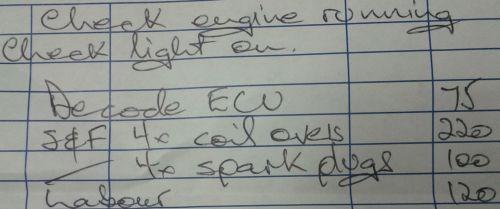 Check engine running
Check light on.
Decode ECU 75
S&F 4x coil overs 220
4x spark plugs 100
Labour 120